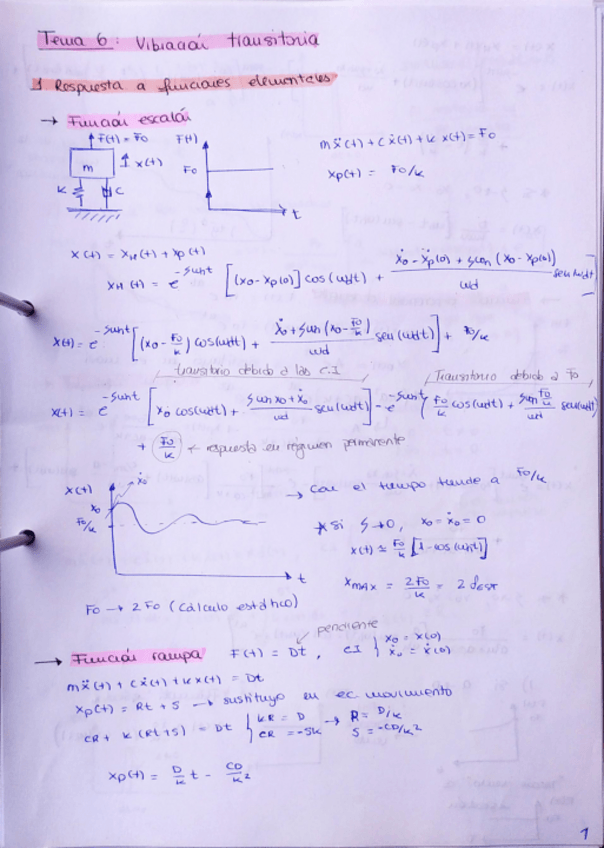 Tema 6: Vibración transitoria
1 Respuesta a funciones elementales
→ Función escalón
F(t) = F0
F(t)
m
x(t)
F0
K
C
t
mẍ(t) + cẋ(t) + k x(t) = F0
xp(t) = F0/k
x(t) = xH(t) + xp(t)
xH(t) = e^-ζωnt [(x0 - xp(0)) cos(ωdt) + (ẋ0 - ẋp(0) + ζωn (x0 - xp(0)))/ωd sen(ωdt)]
x(t) = e^-ζωnt [(x0 - F0/k) cos(ωdt) + (ẋ0 + ζωn (x0 - F0/k))/ωd sen(ωdt)] + F0/k
transitorio debido a las C.I
Transitorio debido a F0
x(t) = e^-ζωnt [x0 cos(ωdt) + (ζωn x0 + ẋ0)/ωd sen(ωdt)] - e^-ζωnt (F0/k cos(ωdt) + (ζωn F0/k)/ωd sen(ωdt)
+ F0/k ← respuesta en régimen permanente
x(t)
ẋ0
x0
F0/k
t
→ Con el tiempo tiende a F0/k
* Si ζ→0, x0 = ẋ0 = 0
x(t) ≃ F0/k [1 - cos(ωnt)]
xMAX = 2F0/k = 2 δEST
F0 → 2F0 (cálculo estático)
pendiente
→ Función rampa F(t) = Dt, CI { x0 = x(0)
ẋ0 = ẋ(0)
mẍ(t) + cẋ(t) + kx(t) = Dt
xp(t) = Rt + S → sustituyo en ec. movimiento
CR + k (Rt+S) = Dt { kR = D → R = D/k
CR = -Sk S = -CD/k²
xp(t) = D/k t - CD/k²
1